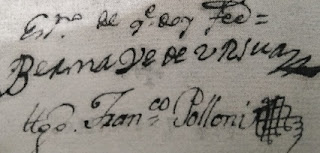 Essno de qe doy fee =
BERNAVE DE URIUA
ttgo. Franco Polloni